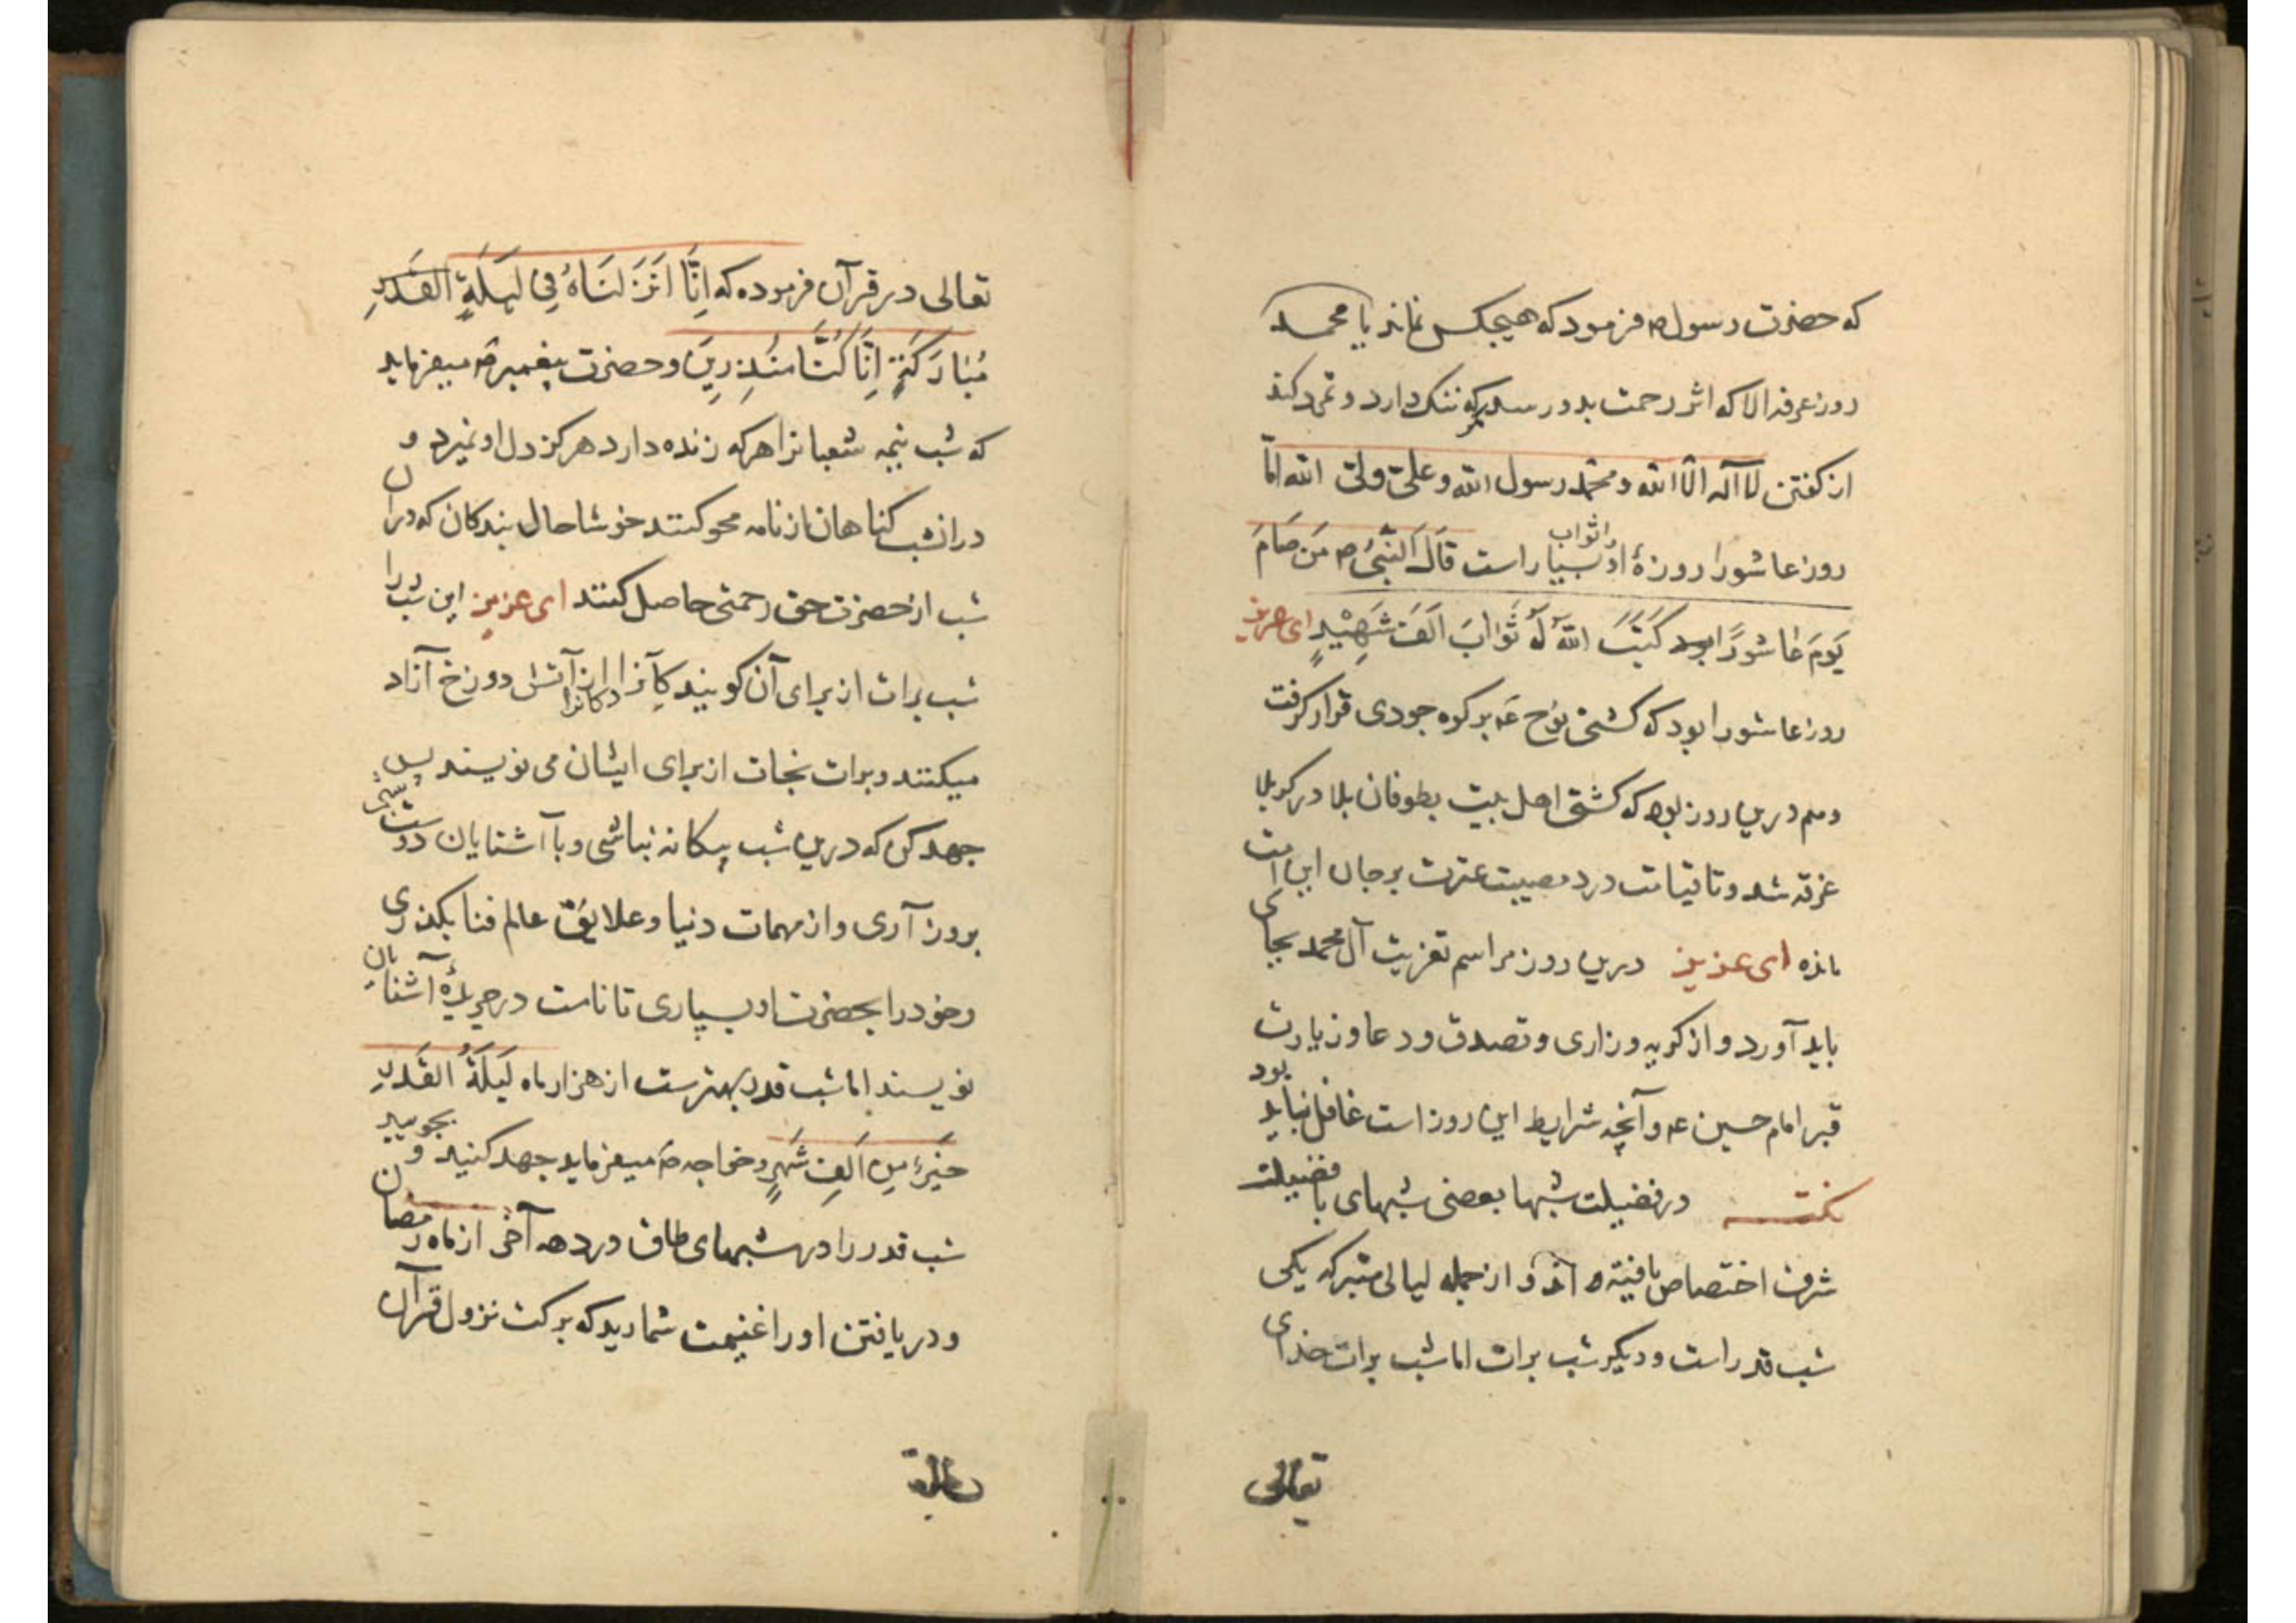 که حضرت رسول ص فرمود که هیچکس نماند یا محمد
روز عرفه الا که اثر رحمت بدو رسد مگر که ننک دارد و تمرد کند
از کفتن لا اله الا الله و محمد رسول الله و علی ولی الله اما
روز عاشورا روزهٔ او را ثواب بسیار است قَالَ النَّبِیُ ص مَن صَامَ
یَومَ عَاشُورًا کَتَبَ اللهُ لَهُ ثَوَابَ اَلفَ شَهِیْدٍ ای عزیز
روز عاشورا بود که کشتی نوح ع بر کوه جودی قرار کرفت
و هم درین روز بود که کشتی اهل بیت بطوفان بلا در کربلا
غرقه شد و تا قیامت درد مصیبت عترت بر جان این امت
مانده ای عزیز درین روز مراسم تعزیت آل محمد بجای
باید آورد و از کریه و زاری و تصدق و دعا و زیارت
قبر امام حسین ع و آنچه شرایط این روز است غافل نباید بود
نکته در فضیلت شبها بعضی شبهای با فضیلت
شرف اختصاص یافته اند و از جمله لیالی متبرکه یکی
شب قدر است و دیکر شب برات اما شب برات خدای
تعالی
تعالی در قرآن فرموده که اِنَّا اَنزَلنَاهُ فِی لَیلَةٍ القَدرِ
مُبَارَکَةٍ اِنَّا کُنَّا مُنذِرِینَ و حضرت پیغمبر ص میفرماید
که شب نیمه شعبانرا هر که زنده دارد هرکز دل او نمیرد و
در انشب کناهان از نامه محو کنند خوشا حال بندکان که در آن
شب از حضرت حق رحمتی حاصل کنند ای عزیز این شب را
شب برات از برای آن کویند که آنرا از آتش دوزخ آزاد
میکنند و برات نجات از برای ایشان می نویسند پس
جهد کن که درین شب بیکانه نباشی و با آشنایان دوست
بروز آری و از مهمات دنیا و علایق عالم فنا بکذری
و خود را بحضرت او بسپاری تا نامت در جریدهٔ آشنایان
نویسند اما شب قدر بهترست از هزار ماه لَیلَةُ القَدرِ
خَیرٌ مِن اَلفِ شَهرٍ و خواجه ص میفرماید جهد کنید و بجویید
شب قدر را در شبهای طاق در دهه آخر از ماه رمضان
و در یافتن او را غنیمت شمارید که برکت نزول قرآن